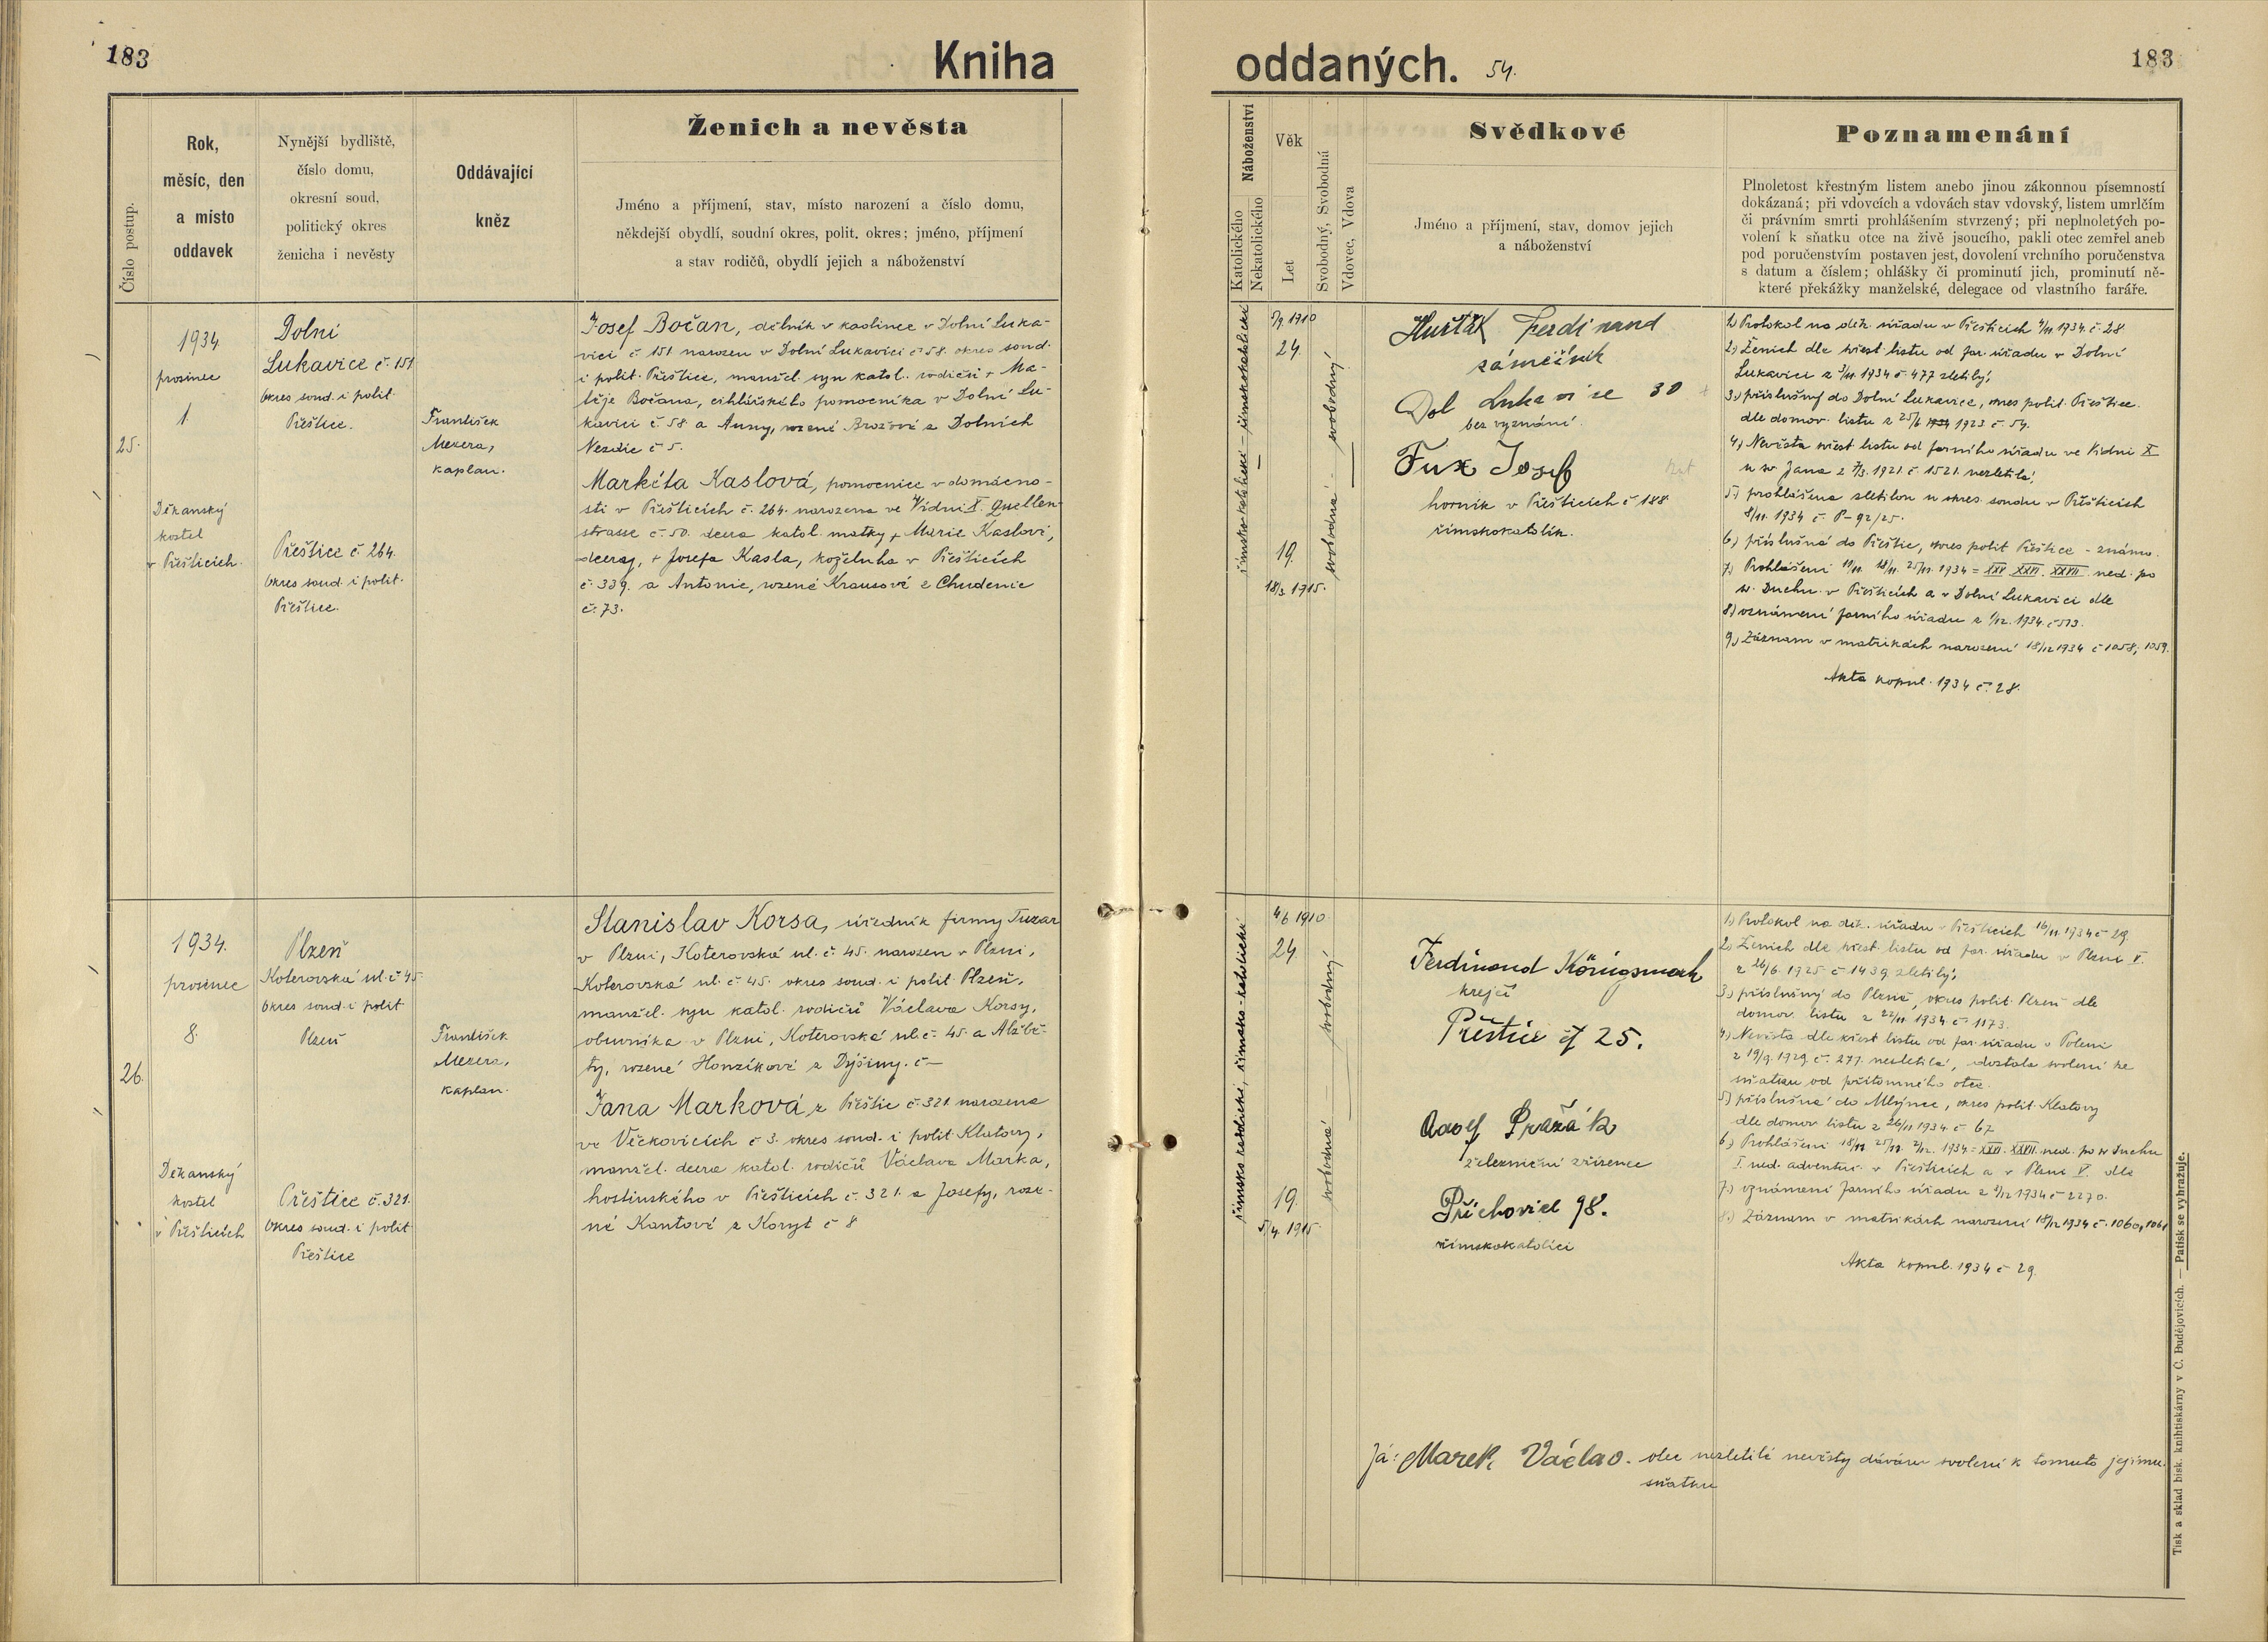 183
Kniha
Číslo postup.
Rok,
měsíc, den
a místo
oddavek
Nynější bydliště,
číslo domu,
okresní soud,
politický okres
ženicha i nevěsty
Oddávající
kněz
Ženich a nevěsta
Jméno a příjmení, stav, místo narození a číslo domu,
někdejší obydlí, soudní okres, polit. okres; jméno, příjmení
a stav rodičů, obydlí jejich a náboženství
25.
1934
prosinec
1.
Děkanský
kostel
v Přešticích.
Dolní
Lukavice č. 151
Okres soud. i polit.
Přeštice.
Přeštice č. 264.
Okres soud. i polit.
Přeštice.
František
Mezera,
kaplan.
Josef Bočan, dělník v kaolince v Dolní Luka-
vici č. 151 narozen v Dolní Lukavici č. 58. okres soud.
i polit. Přeštice, manžel. syn katol. rodičů + Ma-
těje Bočana, cihlářského pomocníka v Dolní Lu-
kavici č. 58 a Anny, rozené Brožové z Dolních
Nezdic č 5.
Markéta Kaslová, pomocnice v domácno-
sti v Přešticích č. 264. narozena ve Vídni X. Quellen-
strasse č. 50. dcera katol. matky + Marie Kaslové,
dcery, + Josefa Kasla, koželuha v Přešticích
č. 339. a Antonie, rozené Krausové z Chudenic
č. 73.
26.
1934.
prosinec
8.
Děkanský
kostel
v Přešticích
Plzeň
Koterovská ul. č 45.
Okres soud. i polit
Plzeň
Přeštice č. 321.
Okres soud. i polit
Přeštice
František
Mezera,
kaplan.
Stanislav Korsa, úředník firmy Tuzar
v Plzni, Koterovská ul. č. 45. narozen v Plzni,
Koterovská ul. č. 45. okres soud. i polit. Plzeň,
manžel. syn katol. rodičů Václava Korsy,
obuvníka v Plzni, Koterovská ul. č. 45. a Alžbě-
ty, rozené Honzíkové z Dýšiny. č —
Jana Marková z Přeštic č. 321 narozena
ve Věckovicích č 3. okres soud. i polit. Klatovy,
manžel. dcera katol. rodičů Václava Marka,
hostinského v Přešticích č. 321. a Josefy, roze-
né Kantové z Koryt č 8
oddaných. 54.
183
Náboženství
Katolického
Nekatolického
Věk
Let
Svobodný, Svobodná
Vdovec, Vdova
Svědkové
Jméno a příjmení, stav, domov jejich
a náboženství
Poznamenání
Plnoletost křestným listem anebo jinou zákonnou písemností
dokázaná; při vdovcích a vdovách stav vdovský, listem umrlčím
či právním smrti prohlášením stvrzený; při neplnoletých po-
volení k sňatku otce na živě jsoucího, pakli otec zemřel aneb
pod poručenstvím postaven jest, dovolení vrchního poručenstva
s datum a číslem; ohlášky či prominutí jich, prominutí ně-
které překážky manželské, delegace od vlastního faráře.
římskokatolické — římskokatolické
1910
24.
19.
18/3. 1915.
svobodná — svobodný
Huršták Ferdinand
zámečník
Dol Lukavice 30
bez vyznání.
Fux Josef
horník v Přešticích č 188.
římskokatolík.
1.) Protokol na děk. úřadu v Přešticích 4/11. 1934. č. 28.
2.) Ženich dle křest. listu od far. úřadu v Dolní
Lukavici z 3/11. 1934 č. 477 zletilý,
3.) příslušný do Dolní Lukavice, okres polit. Přeštice.
dle domov. listu z 25/6 1923. č. 54.
4.) Nevěsta křest listu od farního úřadu ve Vídni X
u sv. Jana z 7/3. 1921. č 1521. nezletilá,
5.) prohlášena zletilou u okres. soudu v Přešticích
8/11. 1934 č. P-92/25.
6.) příslušná do Přeštic, okres polit Přeštice - známo.
7.) Prohlášení 11/11. 18/11. 25/11. 1934 = XXV XXVI. XXVII. ned. po
sv. Duchu v Přešticích a v Dolní Lukavici dle
8.) oznámení farního úřadu z 1/12. 1934. č 513.
9.) Záznam v matrikách narození 18/12 1934 č 1058, 1059.
Akta kopul. 1934 č. 28.
římskokatolické, římsko-katolické
4/6 1910.
24.
19.
5/4. 1915.
svobodná — svobodný
Ferdinand Königsmark
krejčí
Přeštice čp 25.
Adolf Pražák
železniční zřízenec
Příchovice 98.
římskokatolíci
1.) Protokol na děk. úřadu v Přešticích 16/11. 1934 č 29.
2.) Ženich dle křest. listu od far. úřadu v Plzni V.
z 26/6. 1925. č 1439. zletilý,
3.) příslušný do Plzně, okres polit. Plzeň dle
domov. listu z 22/11. 1934. č. 1173.
4.) Nevěsta dle křest listu od far. úřadu v Poleni
z 19/9. 1929. č. 277. nezletilá, dostala svolení ke
sňatku od přítomného otce.
5.) příslušná do Mlýnce, okres polit. Klatovy
dle domov. listu z 26/11. 1934. č 67
6.) Prohlášení 18/11 25/11. 2/12. 1934 = XXVI. XXVII. ned. po sv Duchu
I. ned. adventní. v Přešticích a v Plzni V. dle
7.) oznámení farního úřadu z 2/12 1934 č 2270.
8.) Záznam v matrikách narození 18/12 1934 č. 1060, 1061
Akta kopul. 1934 č 29.
Já: Marek Václav. otec nezletilé nevěsty dávám svolení k tomuto jejímu
sňatku
Tisk a sklad bisk. knihtiskárny v Č. Budějovicích. — Patisk se vyhražuje.